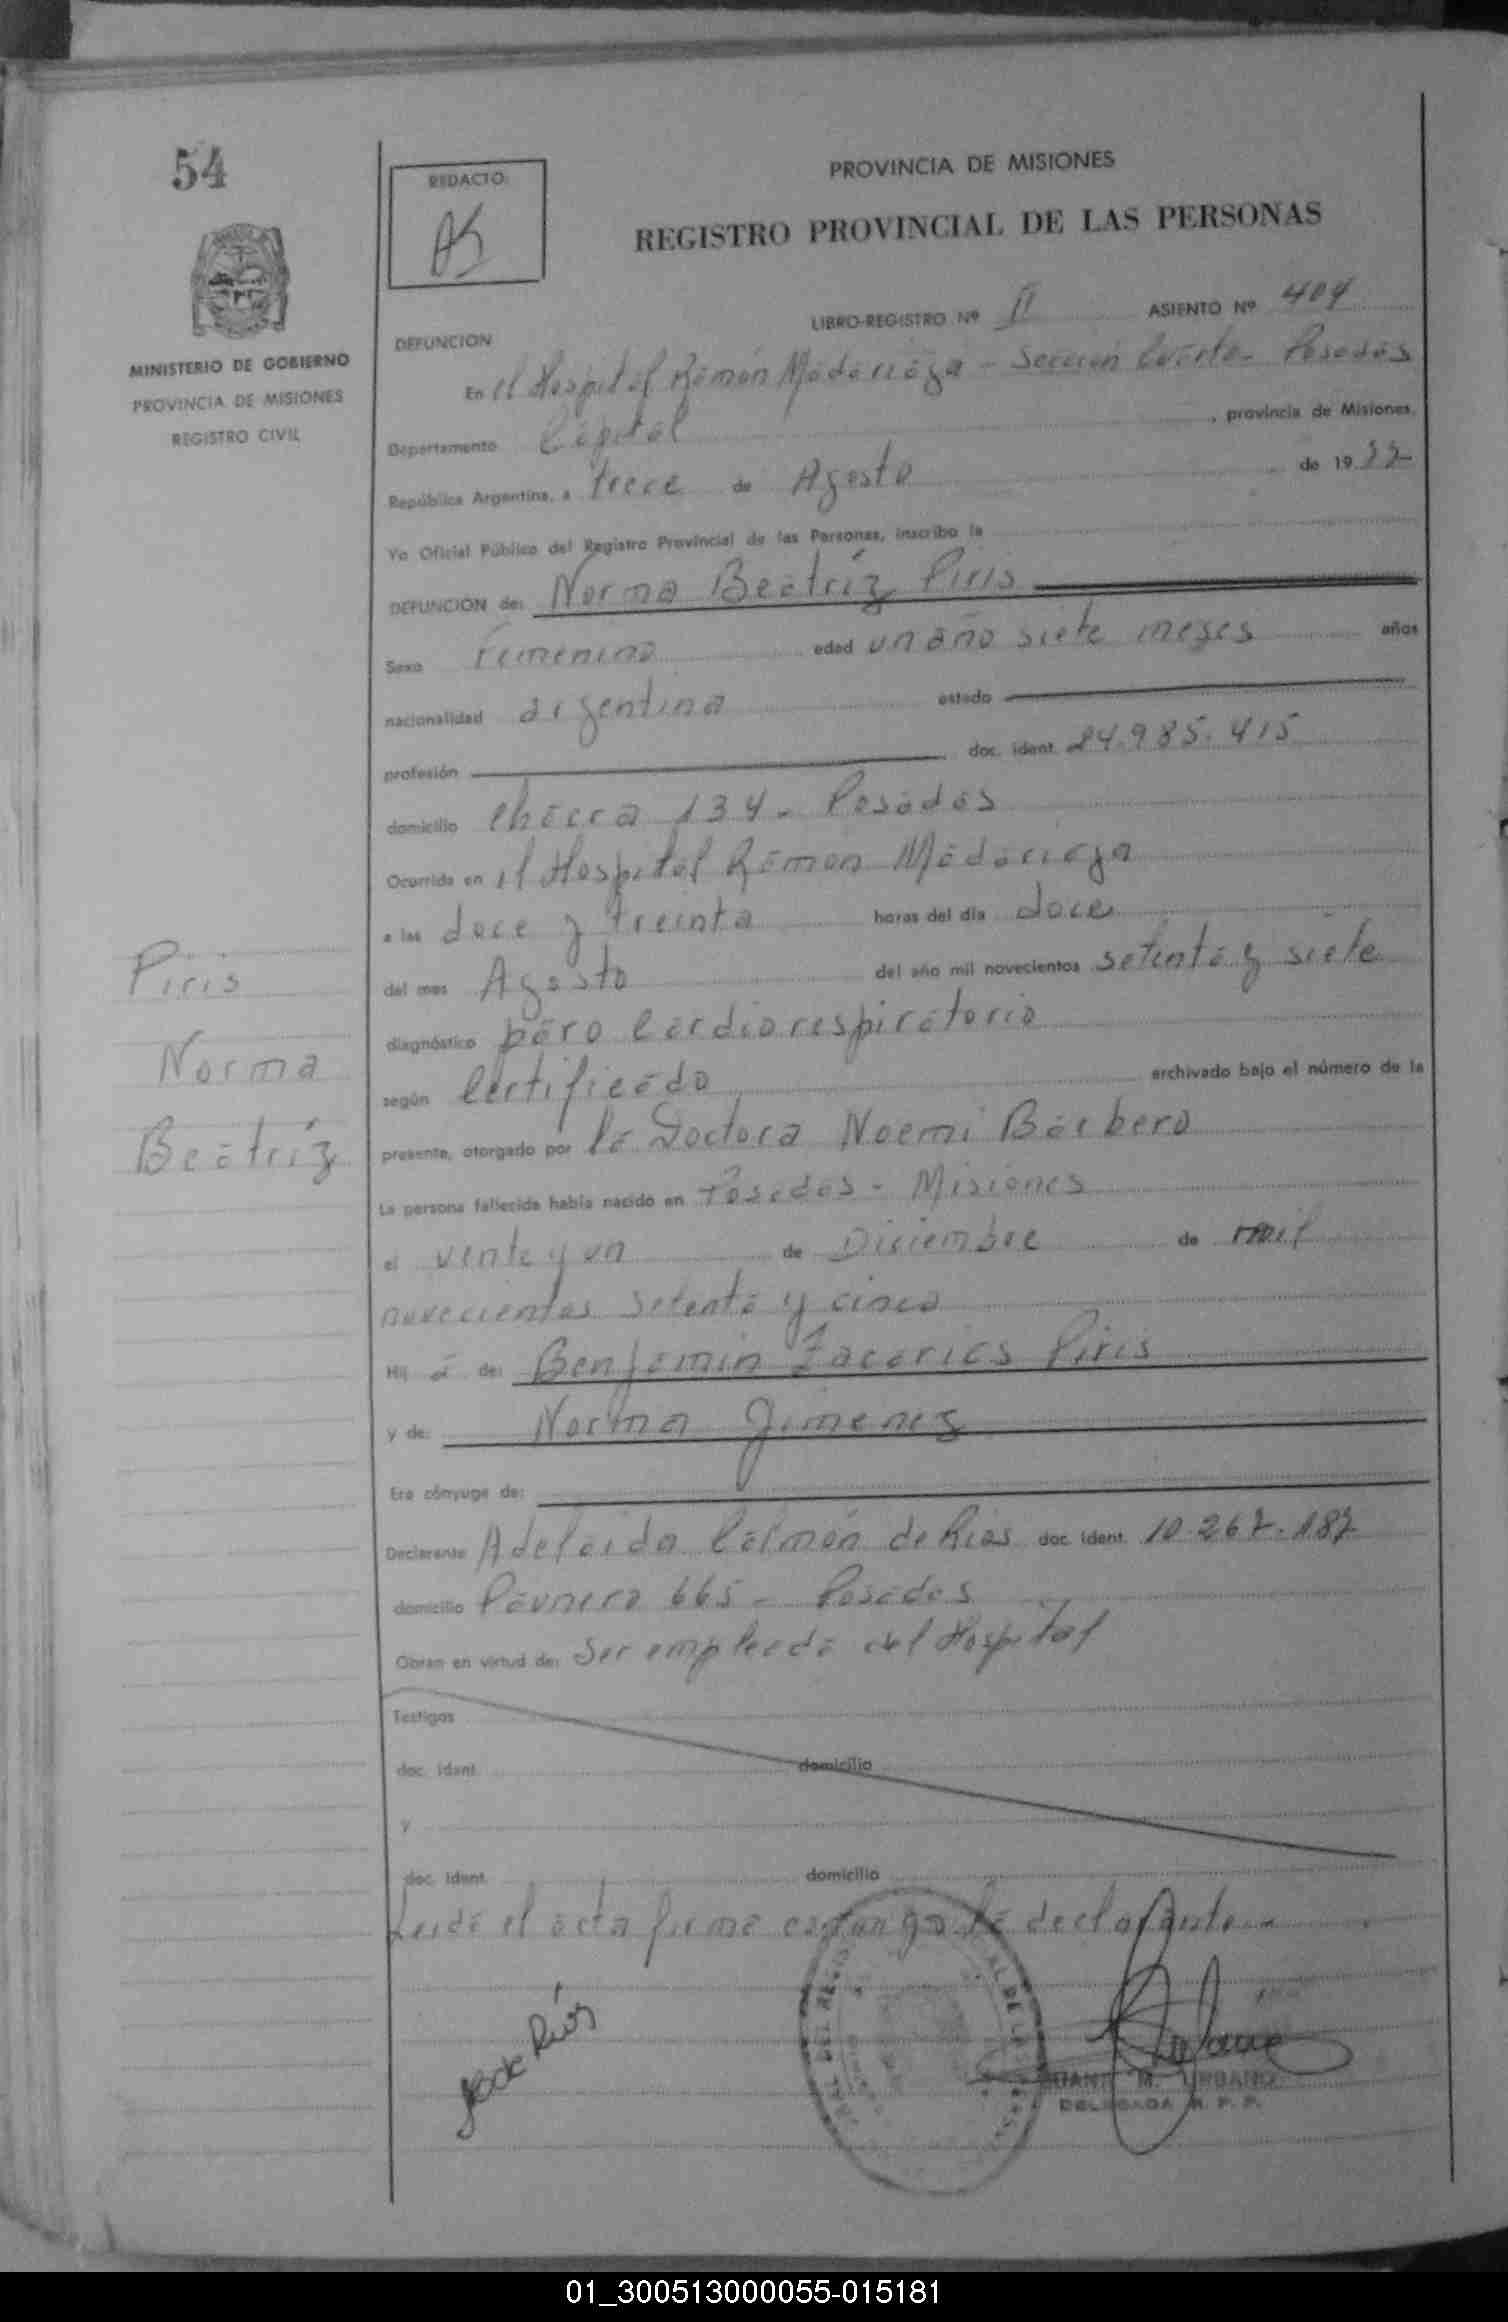 54
REDACTO:
PROVINCIA DE MISIONES
REGISTRO PROVINCIAL DE LAS PERSONAS
MINISTERIO DE GOBIERNO
PROVINCIA DE MISIONES
REGISTRO CIVIL
LIBRO-REGISTRO Nº II ASIENTO Nº 404
DEFUNCION
En el Hospital Ramón Madariaga - Sección Cuarta - Posadas
Departamento Capital, provincia de Misiones,
República Argentina, a trece de Agosto de 1977
Yo Oficial Público del Registro Provincial de las Personas, inscribo la
DEFUNCION de: Norma Beatríz Piris
Sexo Femenino edad un año siete meses años
nacionalidad argentina estado
profesión doc. ident. 24.985.415
domicilio Chacra 134 - Posadas
Ocurrida en el Hospital Ramón Madariaga
a las doce y treinta horas del día doce
del mes Agosto del año mil novecientos setenta y siete
diagnóstico paro Cardiorespiratorio
según Certificado archivado bajo el número de la
presente, otorgado por la Doctora Noemi Barbero
La persona fallecida había nacido en Posadas - Misiones
el vente y un de Diciembre de mil
novecientos setenta y cinco
Hij a de: Benjamin Zacarias Piris
y de: Norma Gimenez
Era cónyuge de:
Declarante Adelaida Calmón de Rios doc. ident. 10.267.187
domicilio Paunero 665 - Posadas
Obran en virtud de: Ser empleada del Hospital
Testigos
doc. ident. domicilio
y
doc. ident. domicilio
Leida el acta firma conmigo la declarante.-
Piris
Norma
Beatríz
de Ríos
JUANA M. URBANO
DELEGADA R. P. P.
01_300513000055-015181